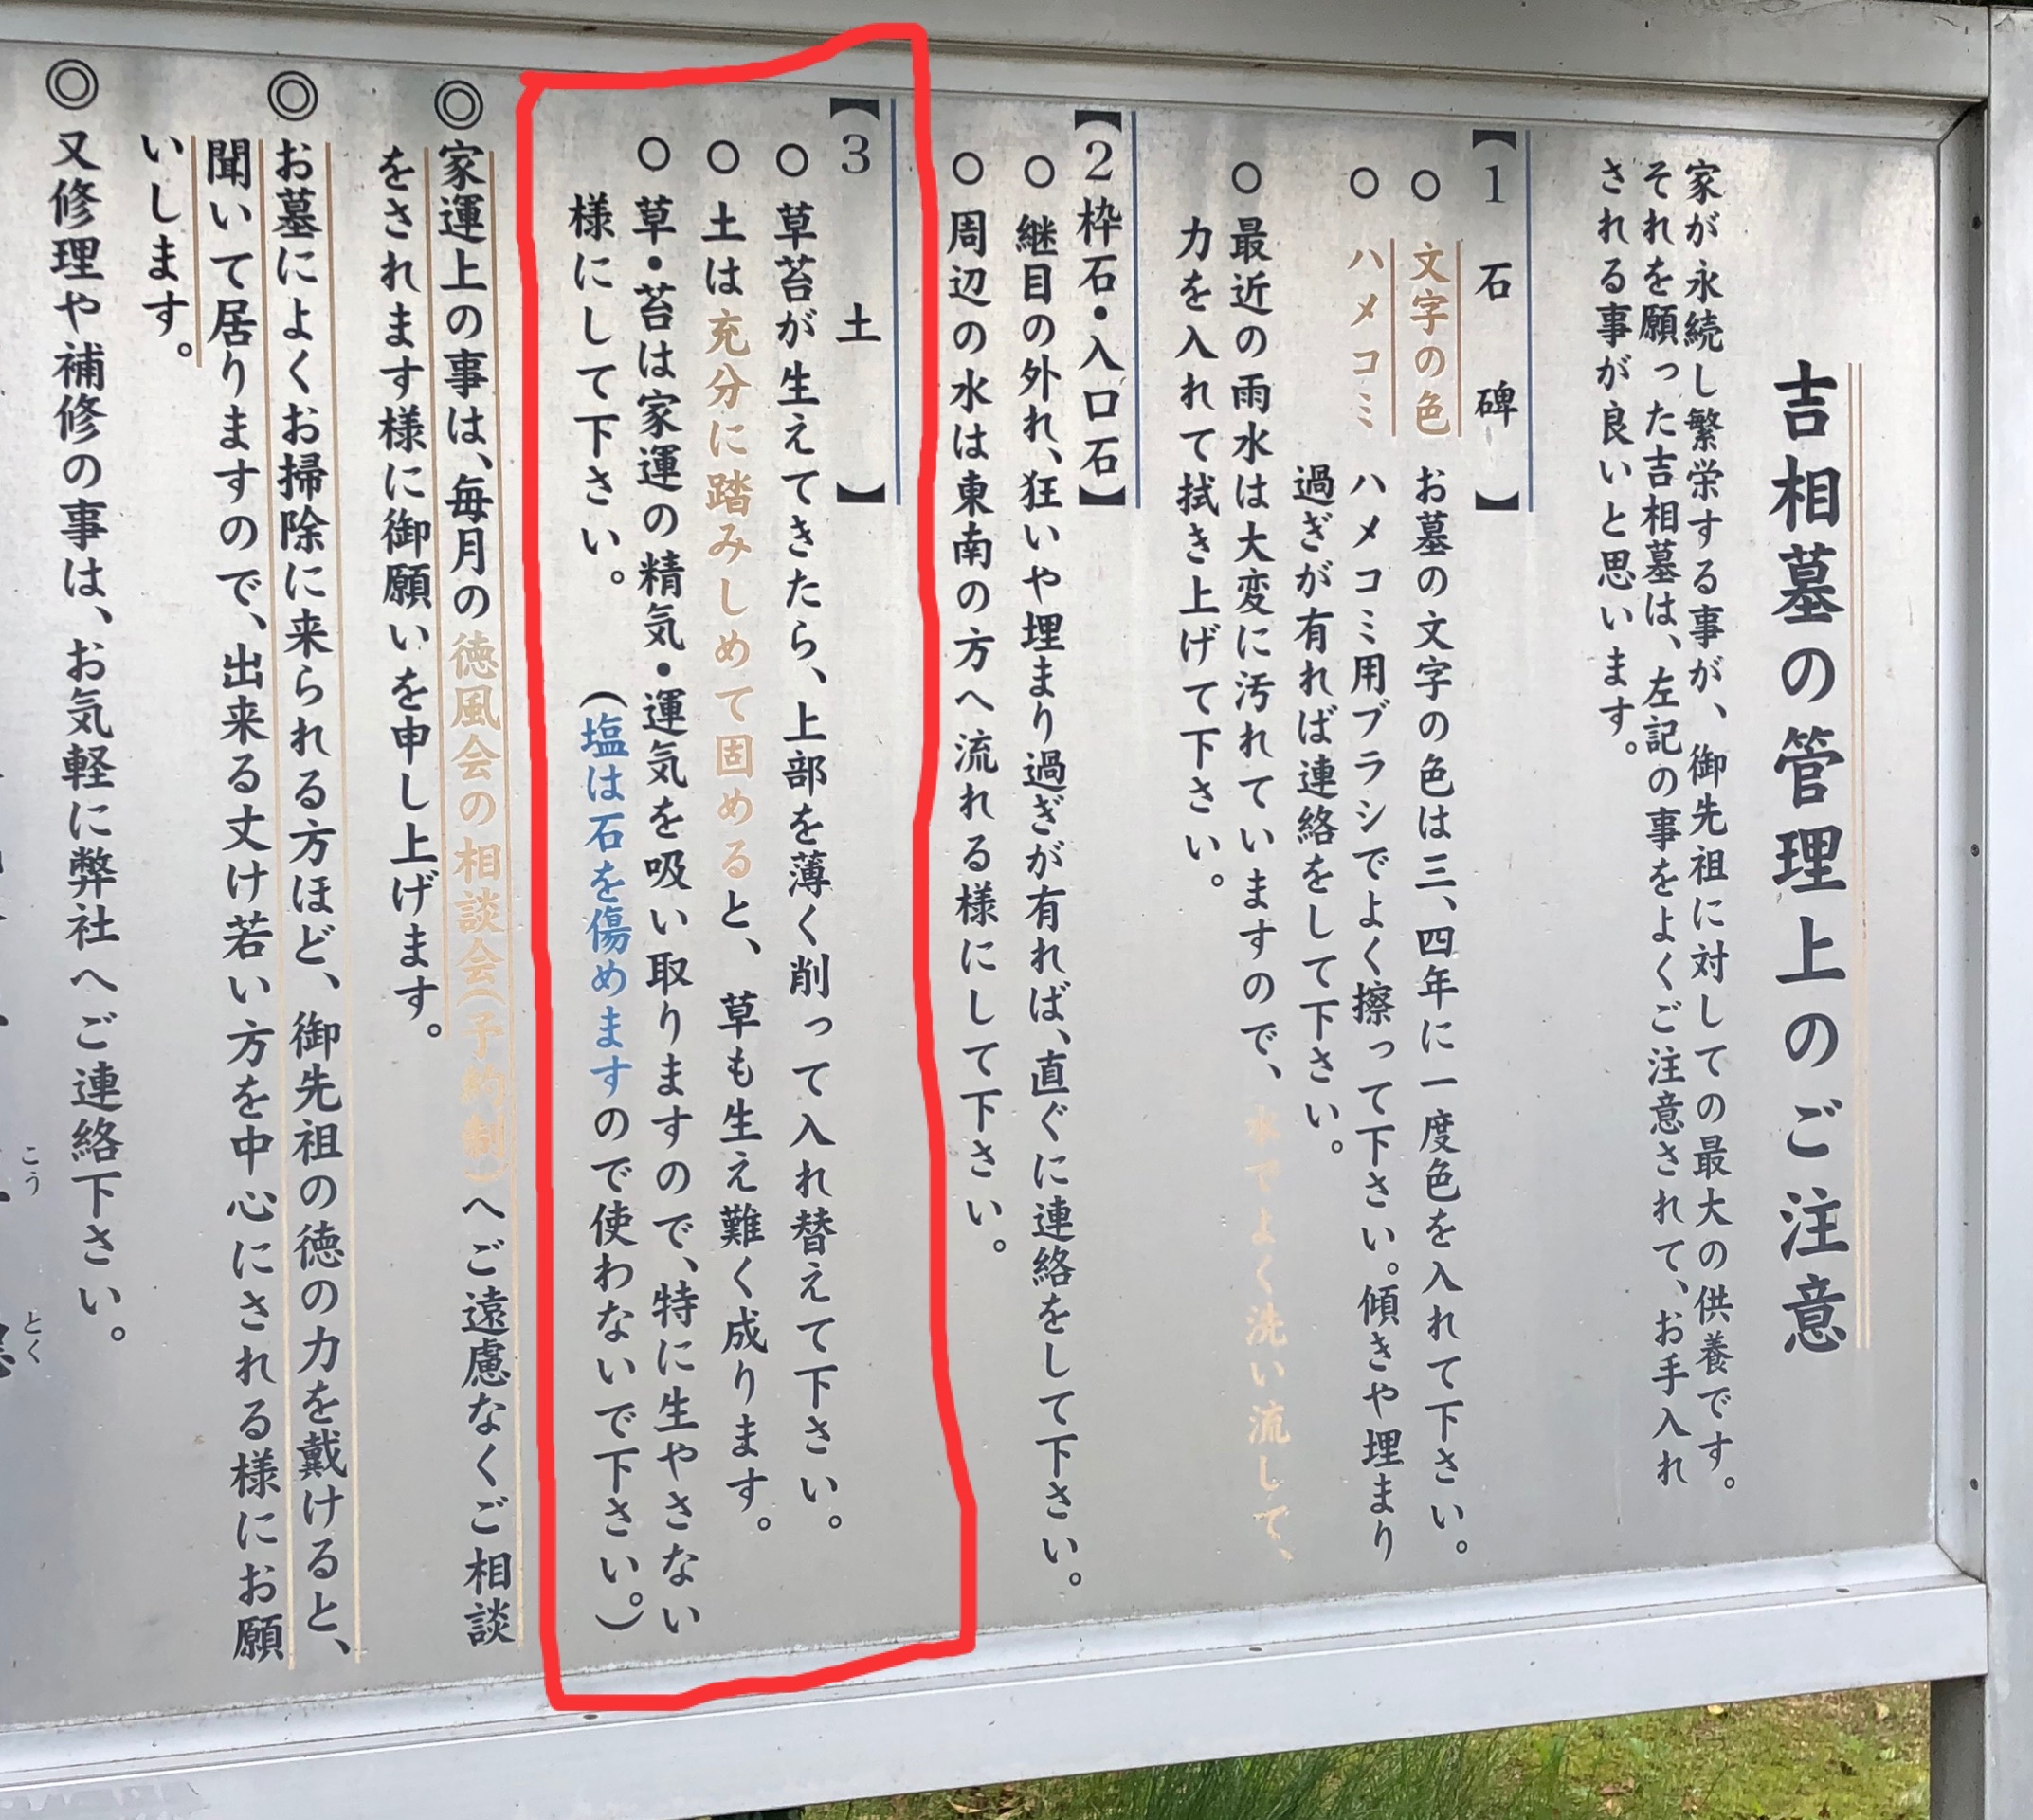 吉相墓の管理上のご注意
家が永続し繁栄する事が、御先祖に対しての最大の供養です。
それを願った吉相墓は、左記の事をよくご注意されて、お手入れ
される事が良いと思います。
【1 石碑】
○ 文字の色 お墓の文字の色は三、四年に一度色を入れて下さい。
○ ハメコミ ハメコミ用ブラシでよく擦って下さい。傾きや埋まり
過ぎが有れば連絡をして下さい。
○ 最近の雨水は大変に汚れていますので、水でよく洗い流して、
力を入れて拭き上げて下さい。
【2枠石・入口石】
○ 継目の外れ、狂いや埋まり過ぎが有れば、直ぐに連絡をして下さい。
○ 周辺の水は東南の方へ流れる様にして下さい。
【3 土】
○ 草苔が生えてきたら、上部を薄く削って入れ替えて下さい。
○ 土は充分に踏みしめて固めると、草も生え難く成ります。
○ 草・苔は家運の精気・運気を吸い取りますので、特に生やさない
様にして下さい。 (塩は石を傷めますので使わないで下さい。)
◎ 家運上の事は、毎月の徳風会の相談会(予約制)へご遠慮なくご相談
をされます様に御願いを申し上げます。
◎ お墓によくお掃除に来られる方ほど、御先祖の徳の力を戴けると、
聞いて居りますので、出来る丈け若い方を中心にされる様にお願
いします。
◎ 又修理や補修の事は、お気軽に弊社へご連絡下さい。
こう とく